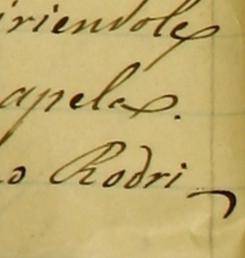 iriendole
apela.
o Rodri